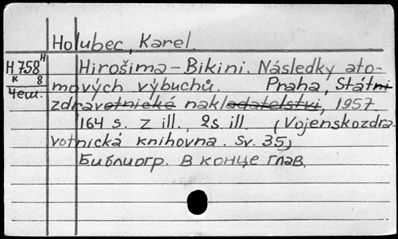 Holubec, Karel.
H 758 H Hirošima - Bikini. Následky ato-
к 8 mových výbuchů. Praha, Státni
Чеш. zdravotnické nakladatelství, 1957
164 s. z ill., 2s. ill. (Vojenskozdra-
votnická knihovna. Sv. 35)
Библиогр. в конце глав.